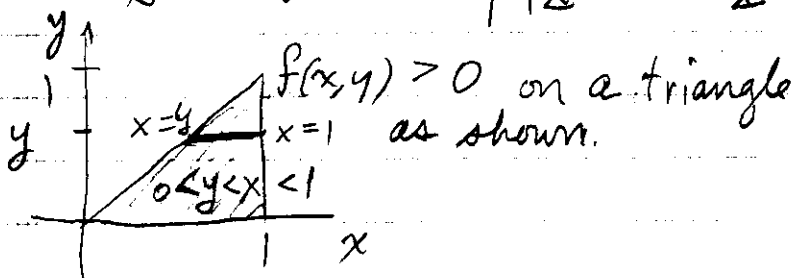 y
1
f(x,y) > 0 on a triangle
y
x=y
x=1
as shown.
0<y<x<1
1
x